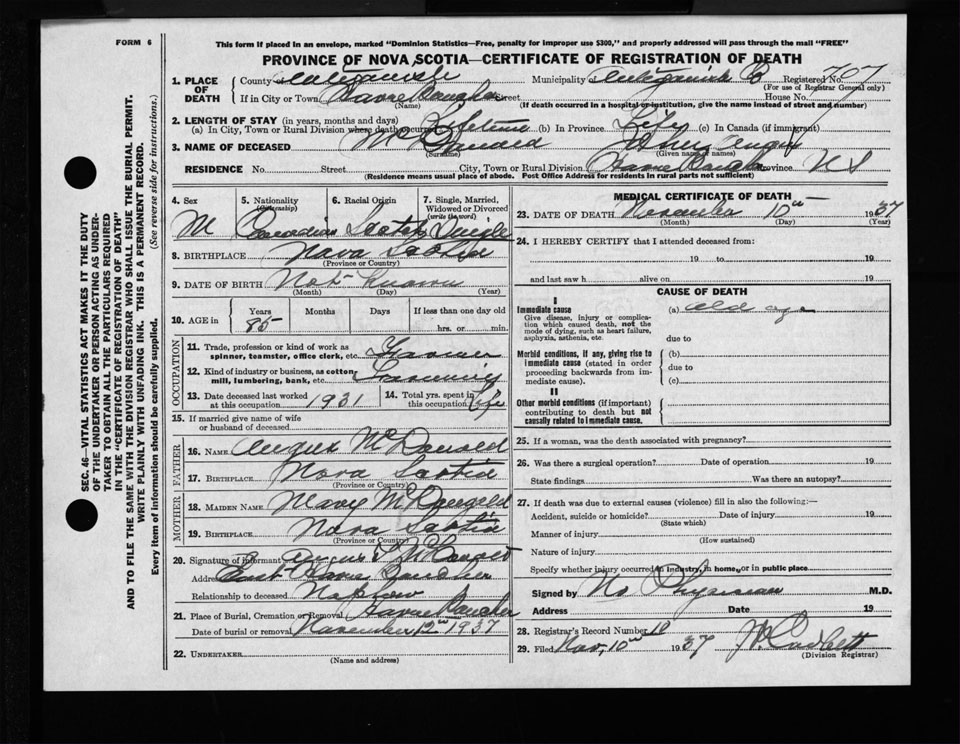 FORM 6
This form if placed in an envelope, marked "Dominion Statistics—Free, penalty for improper use $300," and properly addressed will pass through the mail "FREE"
PROVINCE OF NOVA SCOTIA—CERTIFICATE OF REGISTRATION OF DEATH
SEC. 46—VITAL STATISTICS ACT MAKES IT THE DUTY
OF THE UNDERTAKER OR PERSON ACTING AS UNDER-
TAKER TO OBTAIN ALL THE PARTICULARS REQUIRED
IN THE "CERTIFICATE OF REGISTRATION OF DEATH"
AND TO FILE THE SAME WITH THE DIVISION REGISTRAR WHO SHALL ISSUE THE BURIAL PERMIT.
WRITE PLAINLY WITH UNFADING INK. THIS IS A PERMANENT RECORD.
Every item of information should be carefully supplied. (See reverse side for instructions.)
1. PLACE OF DEATH
County of Municipality of Antigonish Co Registered No. 707
(For use of Registrar General only)
If in City or Town Havre Boucher Street House No.
(Name) (If death occurred in a hospital or institution, give the name instead of street and number)
2. LENGTH OF STAY (in years, months and days)
(a) In City, Town or Rural Division where death occurred Lifetime (b) In Province Life (c) In Canada (if immigrant)
3. NAME OF DECEASED McDonald Angus
(Surname) (Given name or names)
RESIDENCE No. Street City, Town or Rural Division Havre Boucher Province N S
(Residence means usual place of abode. Post Office Address for residents in rural parts not sufficient)
4. Sex M
5. Nationality (Citizenship) Canadian
6. Racial Origin Scotch
7. Single, Married, Widowed or Divorced (write the word) Single
8. BIRTHPLACE Nova Scotia
(Province or Country)
9. DATE OF BIRTH Not Known
(Month) (Day) (Year)
10. AGE in Years Months Days If less than one day old
85 hrs. or min.
OCCUPATION
11. Trade, profession or kind of work as spinner, teamster, office clerk, etc. Farmer
12. Kind of industry or business, as cotton mill, lumbering, bank, etc. Farming
13. Date deceased last worked at this occupation 1931
14. Total yrs. spent in this occupation Life
15. If married give name of wife or husband of deceased
FATHER
16. NAME Angus McDonald
17. BIRTHPLACE Nova Scotia
(Province or Country)
MOTHER
18. MAIDEN NAME Mary McDougald
19. BIRTHPLACE Nova Scotia
(Province or Country)
20. Signature of informant Angus McDonald
Address East Havre Boucher
Relationship to deceased Nephew
21. Place of Burial, Cremation or Removal Havre Boucher
Date of burial or removal November 12th 1937
22. UNDERTAKER
(Name and address)
MEDICAL CERTIFICATE OF DEATH
23. DATE OF DEATH November 10th 1937
(Month) (Day) (Year)
24. I HEREBY CERTIFY that I attended deceased from:
19 to 19
and last saw h alive on 19
CAUSE OF DEATH
I
Immediate cause
Give disease, injury or complication which caused death, not the mode of dying, such as heart failure, asphyxia, asthenia, etc.
(a) Old age
due to
Morbid conditions, if any, giving rise to immediate cause (stated in order proceeding backwards from immediate cause).
(b)
due to
(c)
II
Other morbid conditions (if important) contributing to death but not causally related to immediate cause.
25. If a woman, was the death associated with pregnancy?
26. Was there a surgical operation? Date of operation 19
State findings Was there an autopsy?
27. If death was due to external causes (violence) fill in also the following:—
Accident, suicide or homicide? Date of injury 19
(State which)
Manner of injury
(How sustained)
Nature of injury
Specify whether injury occurred in industry, in home, or in public place
Signed by No Physician M.D.
Address Date 19
28. Registrar's Record Number 19
29. Filed Nov. 10th 1937 Corbett
(Division Registrar)